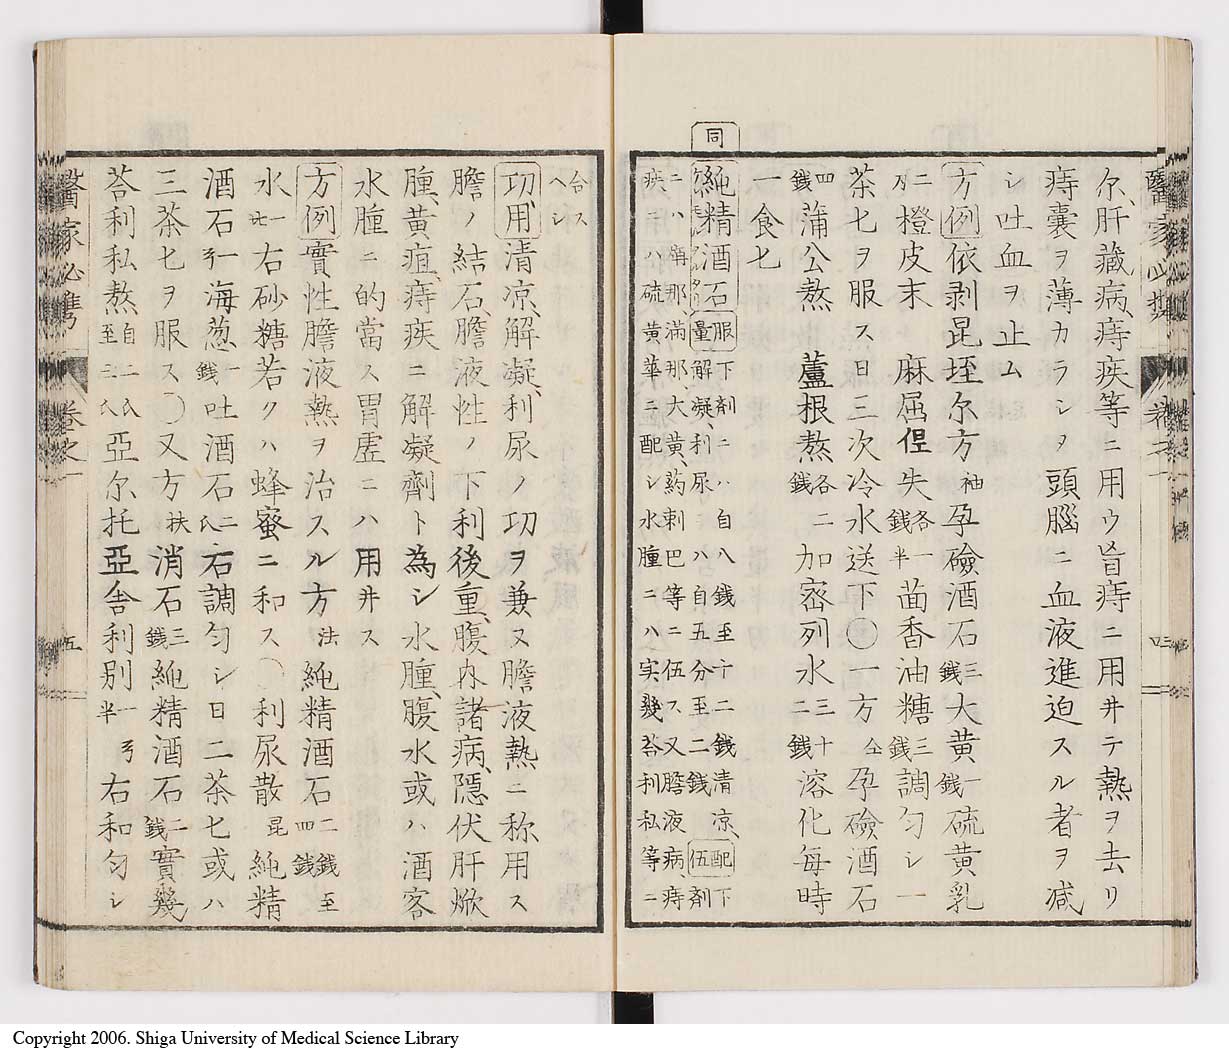 尓、肝藏病、痔疾等ニ用ウ旨痔ニ用井テ熱ヲ去リ
痔囊ヲ薄カラシメ頭腦ニ血液進迫スル者ヲ减
シ吐血ヲ止ム
方例依剥昆垤尓方袖孕礆酒石三錢大黄一錢硫黄乳
二刄橙皮末 麻屈倔失各一錢半茴香油糖三錢調匀シ一
茶七ヲ服ス日三次冷水送下〇一方仝孕礆酒石
四錢蒲公熬 蘆根熬各二錢加密列水三十二錢溶化毎時
一食七
同
純精酒石服量下劑ニハ自八錢至十二錢清凉、解凝、利尿ハ自五分至二錢配伍下劑
ニハ旃那、滿那、大黄、葯刺巴等ニ伍ス又膽液病、痔
疾ニハ硫黄華ニ配シ水腫ニハ実幾荅利私等ニ
合スヘシ
功用清凉、解凝、利尿ノ功ヲ兼又膽液熱ニ称用ス
膽ノ結石、膽液性ノ下利後重、腹内諸病、隱伏肝焮
腫、黄疸、痔疾ニ解凝劑ト為シ水腫、腹水或ハ酒客
水腫ニ的當ス胃虛ニハ用井ス
方例實性膽液熱ヲ治スル方法純精酒石二錢至四錢
水一右砂糖若クハ蜂蜜ニ和ス〇利尿散昆純精
酒石一海葱一錢吐酒石二氏右調匀シ日二茶七或ハ
三茶七ヲ服ス〇又方扶消石三錢純精酒石二錢實幾
荅利私熬自二氏至三氏亞尓托亞舎利別一半右和匀シ
醫家必携 卷之一 五